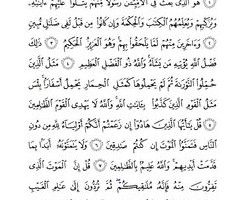 هُوَ ٱلَّذِى بَعَثَ فِى ٱلْأُمِّيِّـۧنَ رَسُولًا مِّنْهُمْ يَتْلُوا۟ عَلَيْهِمْ ءَايَٰتِهِۦ
وَيُزَكِّيهِمْ وَيُعَلِّمُهُمُ ٱلْكِتَٰبَ وَٱلْحِكْمَةَ وَإِن كَانُوا۟ مِن
٢ وَءَاخَرِينَ مِنْهُمْ لَمَّا يَلْحَقُوا۟ بِهِمْ وَهُوَ ٱلْعَزِيزُ ٱلْحَكِيمُ ٣ ذَٰلِكَ
فَضْلُ ٱللَّهِ يُؤْتِيهِ مَن يَشَآءُ وَٱللَّهُ ذُو ٱلْفَضْلِ ٱلْعَظِيمِ ٤ مَثَلُ
حُمِّلُوا۟ ٱلتَّوْرَىٰةَ ثُمَّ لَمْ يَحْمِلُوهَا كَمَثَلِ ٱلْحِمَارِ يَحْمِلُ أَسْفَارًۢا بِئْسَ
مَثَلُ ٱلْقَوْمِ ٱلَّذِينَ كَذَّبُوا۟ بِـَٔايَٰتِ ٱللَّهِ وَٱللَّهُ لَا يَهْدِى ٱلْقَوْمَ ٱلظَّٰلِمِينَ
٥ قُلْ يَٰٓأَيُّهَا ٱلَّذِينَ هَادُوٓا۟ إِن زَعَمْتُمْ أَنَّكُمْ أَوْلِيَآءُ لِلَّهِ مِن دُونِ
ٱلنَّاسِ فَتَمَنَّوُا۟ ٱلْمَوْتَ إِن كُنتُمْ صَٰدِقِينَ ٦ وَلَا يَتَمَنَّوْنَهُۥٓ أَبَدًۢا بِمَا
قَدَّمَتْ أَيْدِيهِمْ وَٱللَّهُ عَلِيمٌۢ بِٱلظَّٰلِمِينَ ٧ قُلْ إِنَّ ٱلْمَوْتَ ٱلَّذِى
تَفِرُّونَ مِنْهُ فَإِنَّهُۥ مُلَٰقِيكُمْ ثُمَّ تُرَدُّونَ إِلَىٰ عَٰلِمِ ٱلْغَيْبِ